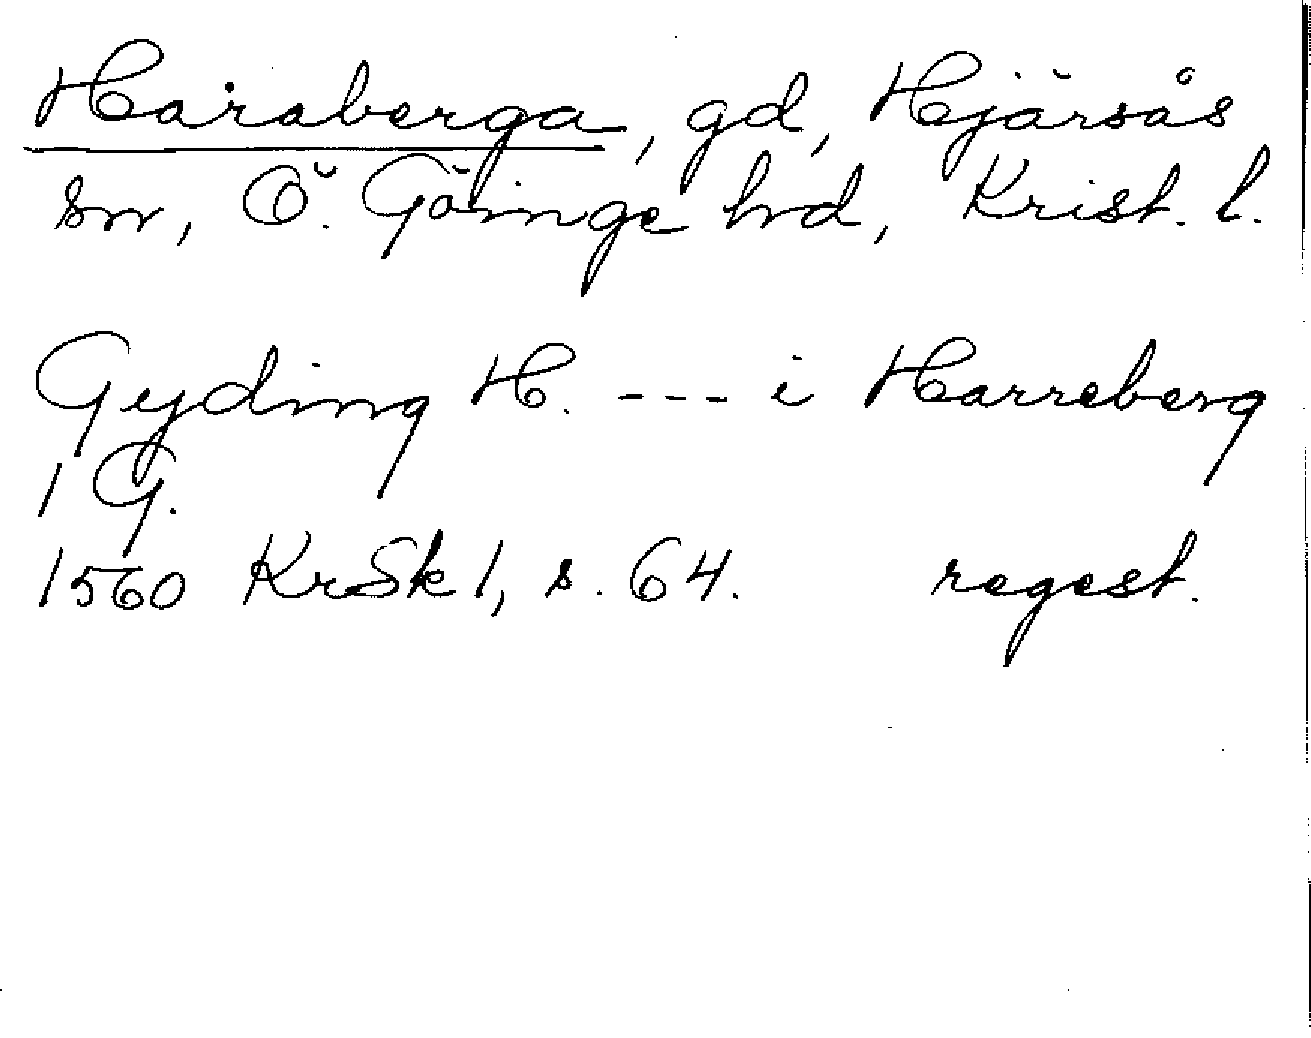 Haraberga, gd, Hjärsås
sn, Ö. Göinge hrd, Krist. l.
Gyding H. --- i Harreberg
1 G.
1560 KrSk 1, s. 64. regest.